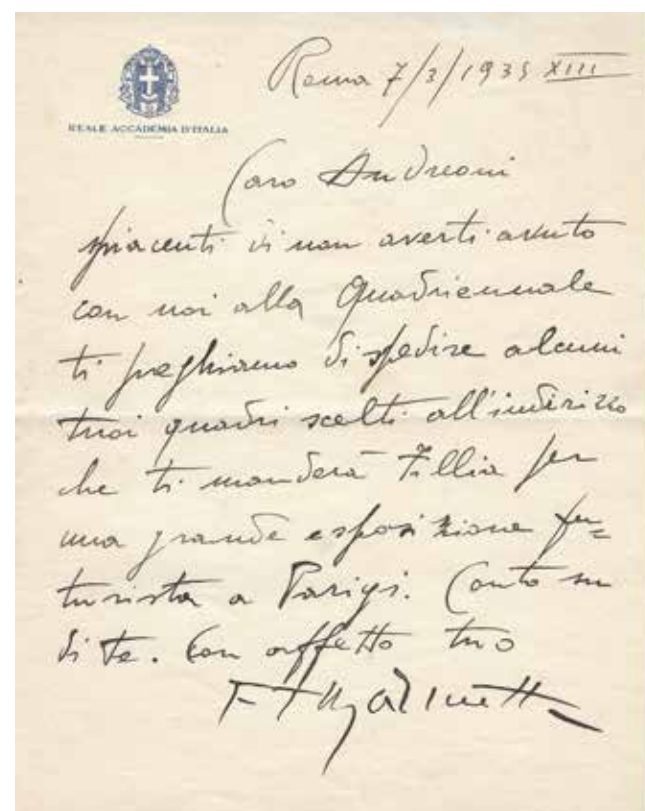 Roma 7/3/1935 XIII
REALE ACCADEMIA D'ITALIA
Caro Andreoni
spiacenti di non averti avuto
con noi alla Quadriennale
ti preghiamo di spedire alcuni
tuoi quadri scelti all'indirizzo
che ti manderà Fillia per
una grande esposizione fu=
turista a Parigi. Conto su
di te. Con affetto tuo
F T Marinetti